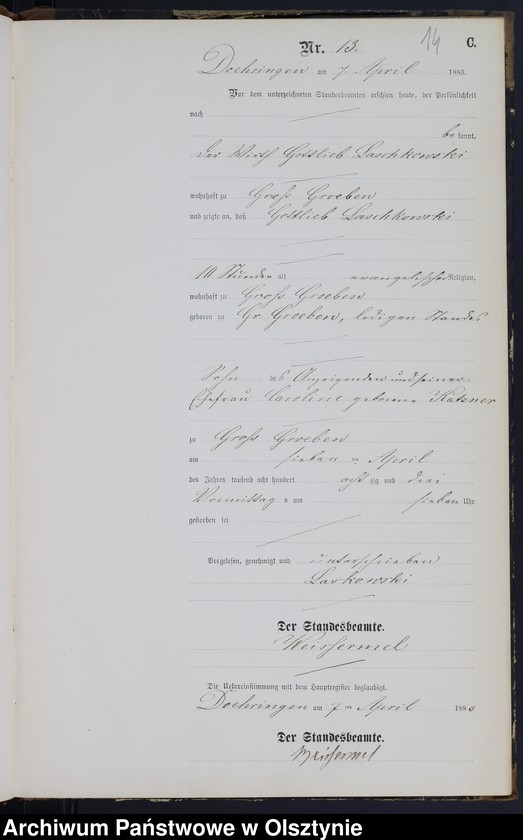 14
Nr. 13. C.
Doehringen am 7 April 1883.
Vor dem unterzeichneten Standesbeamten erschien heute, der Persönlichkeit
nach
be kannt,
der Wirth Gottlieb Laschkowski
wohnhaft zu Groß Groeben
und zeigte an, daß Gottlieb Laschkowski
10 Stunden alt evangelischer Religion,
wohnhaft zu Groß Groeben
geboren zu Gr. Groeben, ledigen Standes
Sohn des Anzeigenden und seiner
Ehefrau Caroline geborene
zu Groß Groeben
am sieben April
des Jahres tausend acht hundert acht zig und drei
Vormittags um sieben Uhr
gestorben sei
Vorgelesen, genehmigt und unterschrieben
Laskowski
Der Standesbeamte.
Weissermel
Die Uebereinstimmung mit dem Hauptregister beglaubigt.
Doehringen am 7 April 1883
Der Standesbeamte.
Weissermel
Archiwum Państwowe w Olsztynie